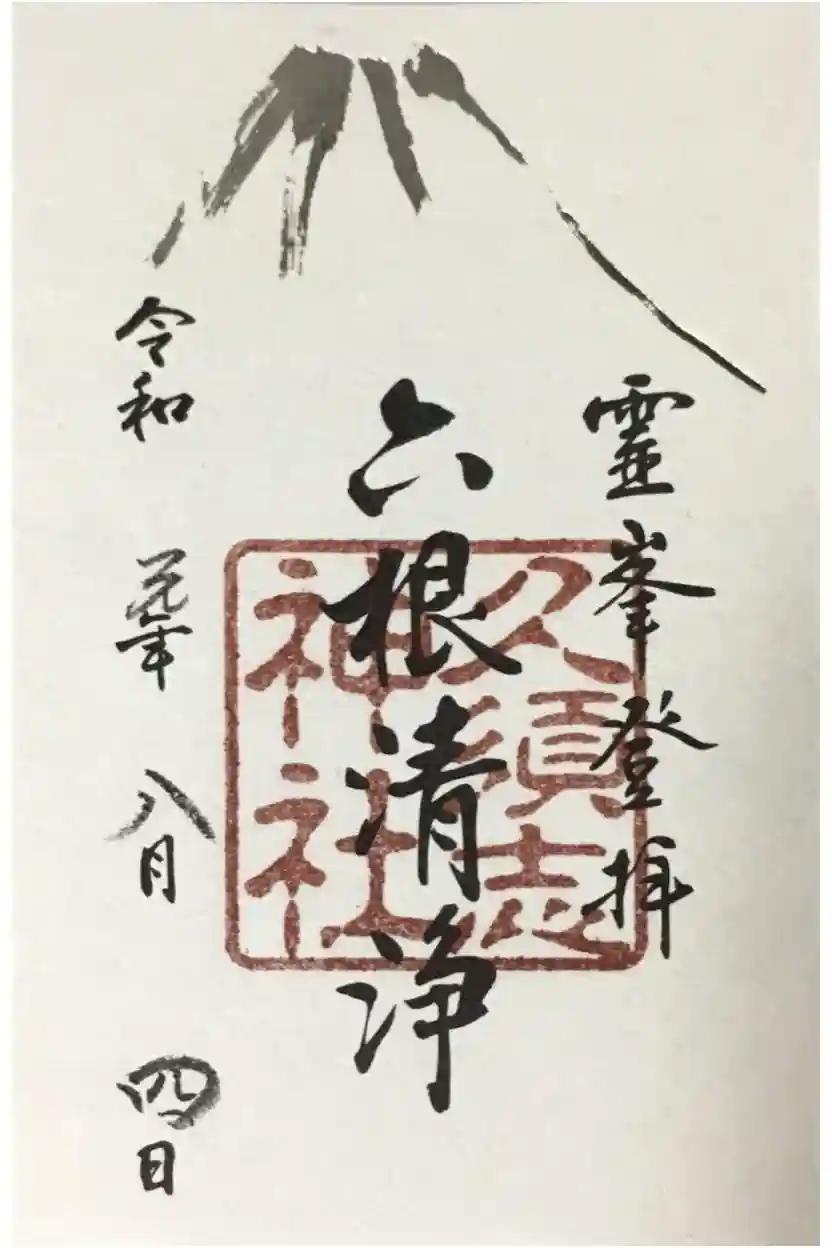 靈峯登拝
六根清浄
令和元年八月四日
久須志
神社